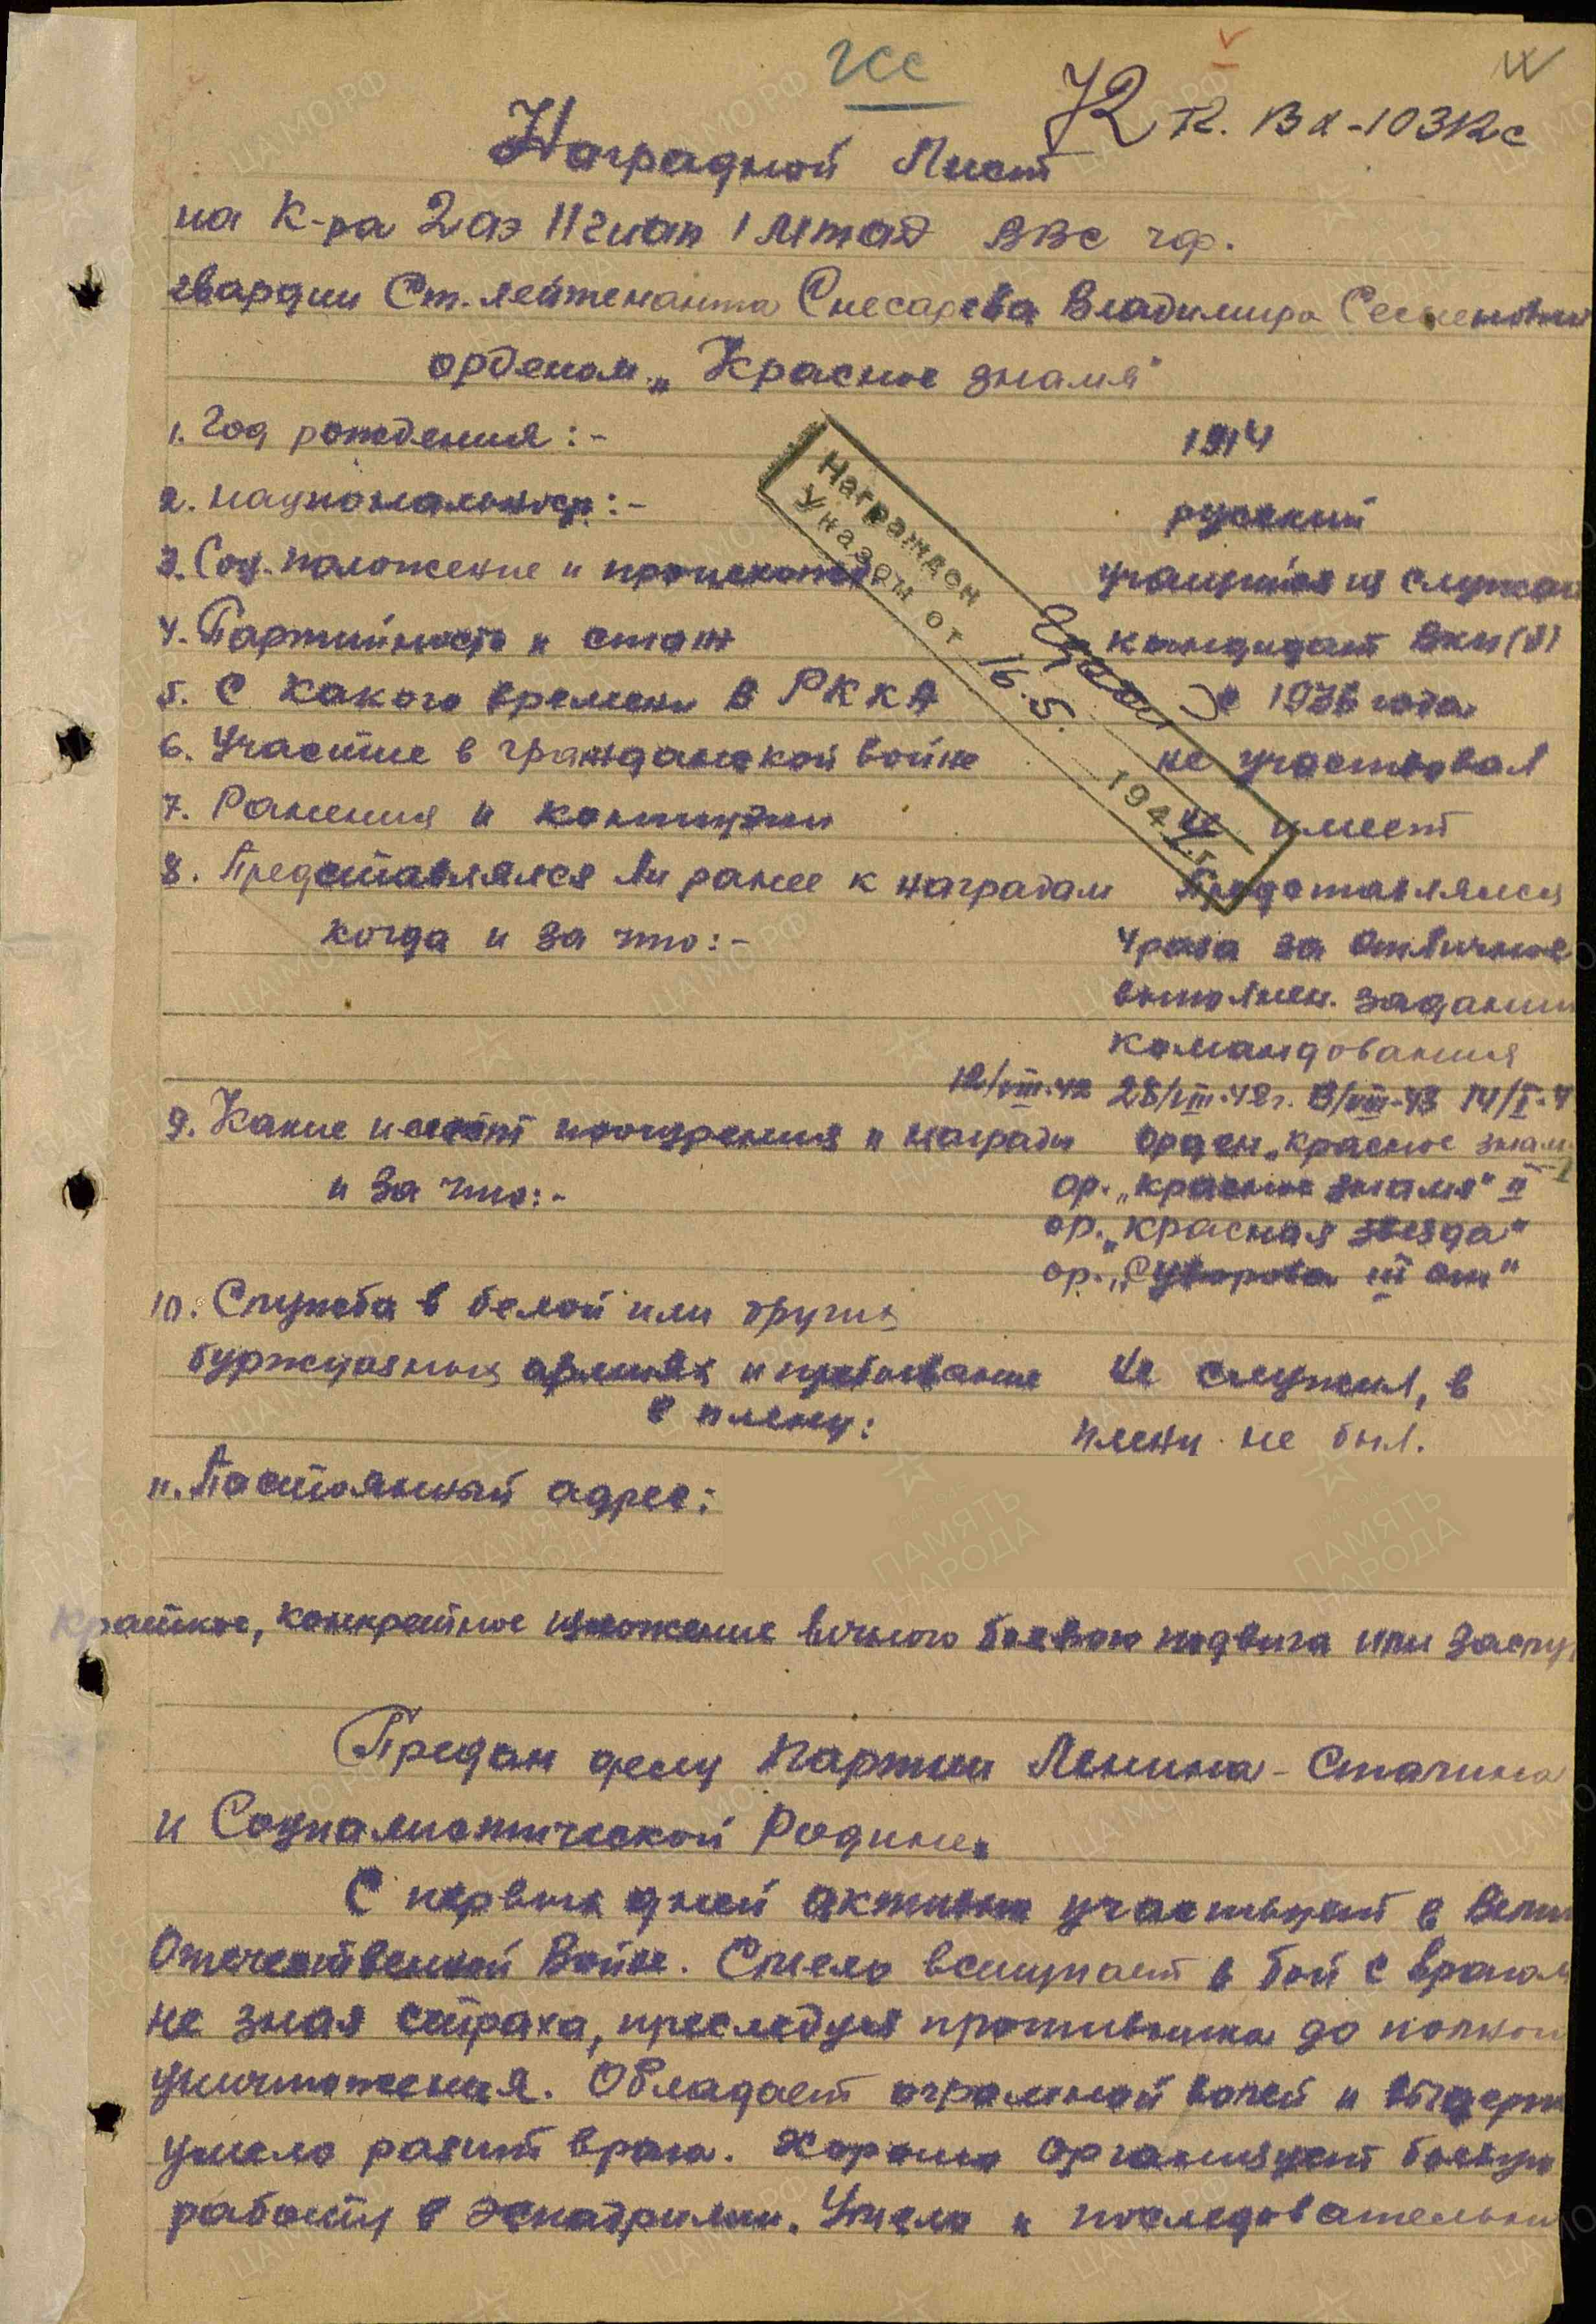 ГСС
72 Т2. Вх-10312с
Наградной Лист
на К-ра 2 аэ 11 гиап 1 мтад ВВС чф.
гвардии Ст. лейтенанта Снесарева Владимира Семеновича
орденом „Красное знамя"
1. Год рождения:- 1914
2. национальность:- русский
3. Соц. положение и происхожд. учащийся из служащ
4. Партийность и стаж кандидат ВКП(б)
5. С какого времени в РККА с 1936 года
6. Участие в гражданской войне не участвовал
7. Ранения и контузии не имеет
8. Представлялся ли ранее к наградам Представлялся
когда и за что:- 4 раза за отличное
выполнен. заданий
командования
12/VIII-42 28/VIII-42г. 3/VIII-43 14/I-4
9. Какие имеет поощрения и награды Орден „Красное знам
и за что:- ор. „Красное знамя" II
ор. „Красная звезда"
ор. „Суворова III ст"
10. Служба в белой или других
буржуазных армиях и пребывание Не служил, в
в плену: плену не был.
11. Постоянный адрес:
Краткое, конкретное изложение личного боевого подвига или заслуг
Предан делу партии Ленина-Сталина
и Социалистической Родине.
С первых дней активно участвует в Вели
Отечественной Войне. Смело вступает в бой с врагом
не зная страха, преследуя противника до полного
уничтожения. Обладает огромной волей и выдерж
умело разит врага. Хорошо организует боевую
работу в эскадрильи. Умело и последовательно
Награжден
Указом от 16.5. 1944 г.